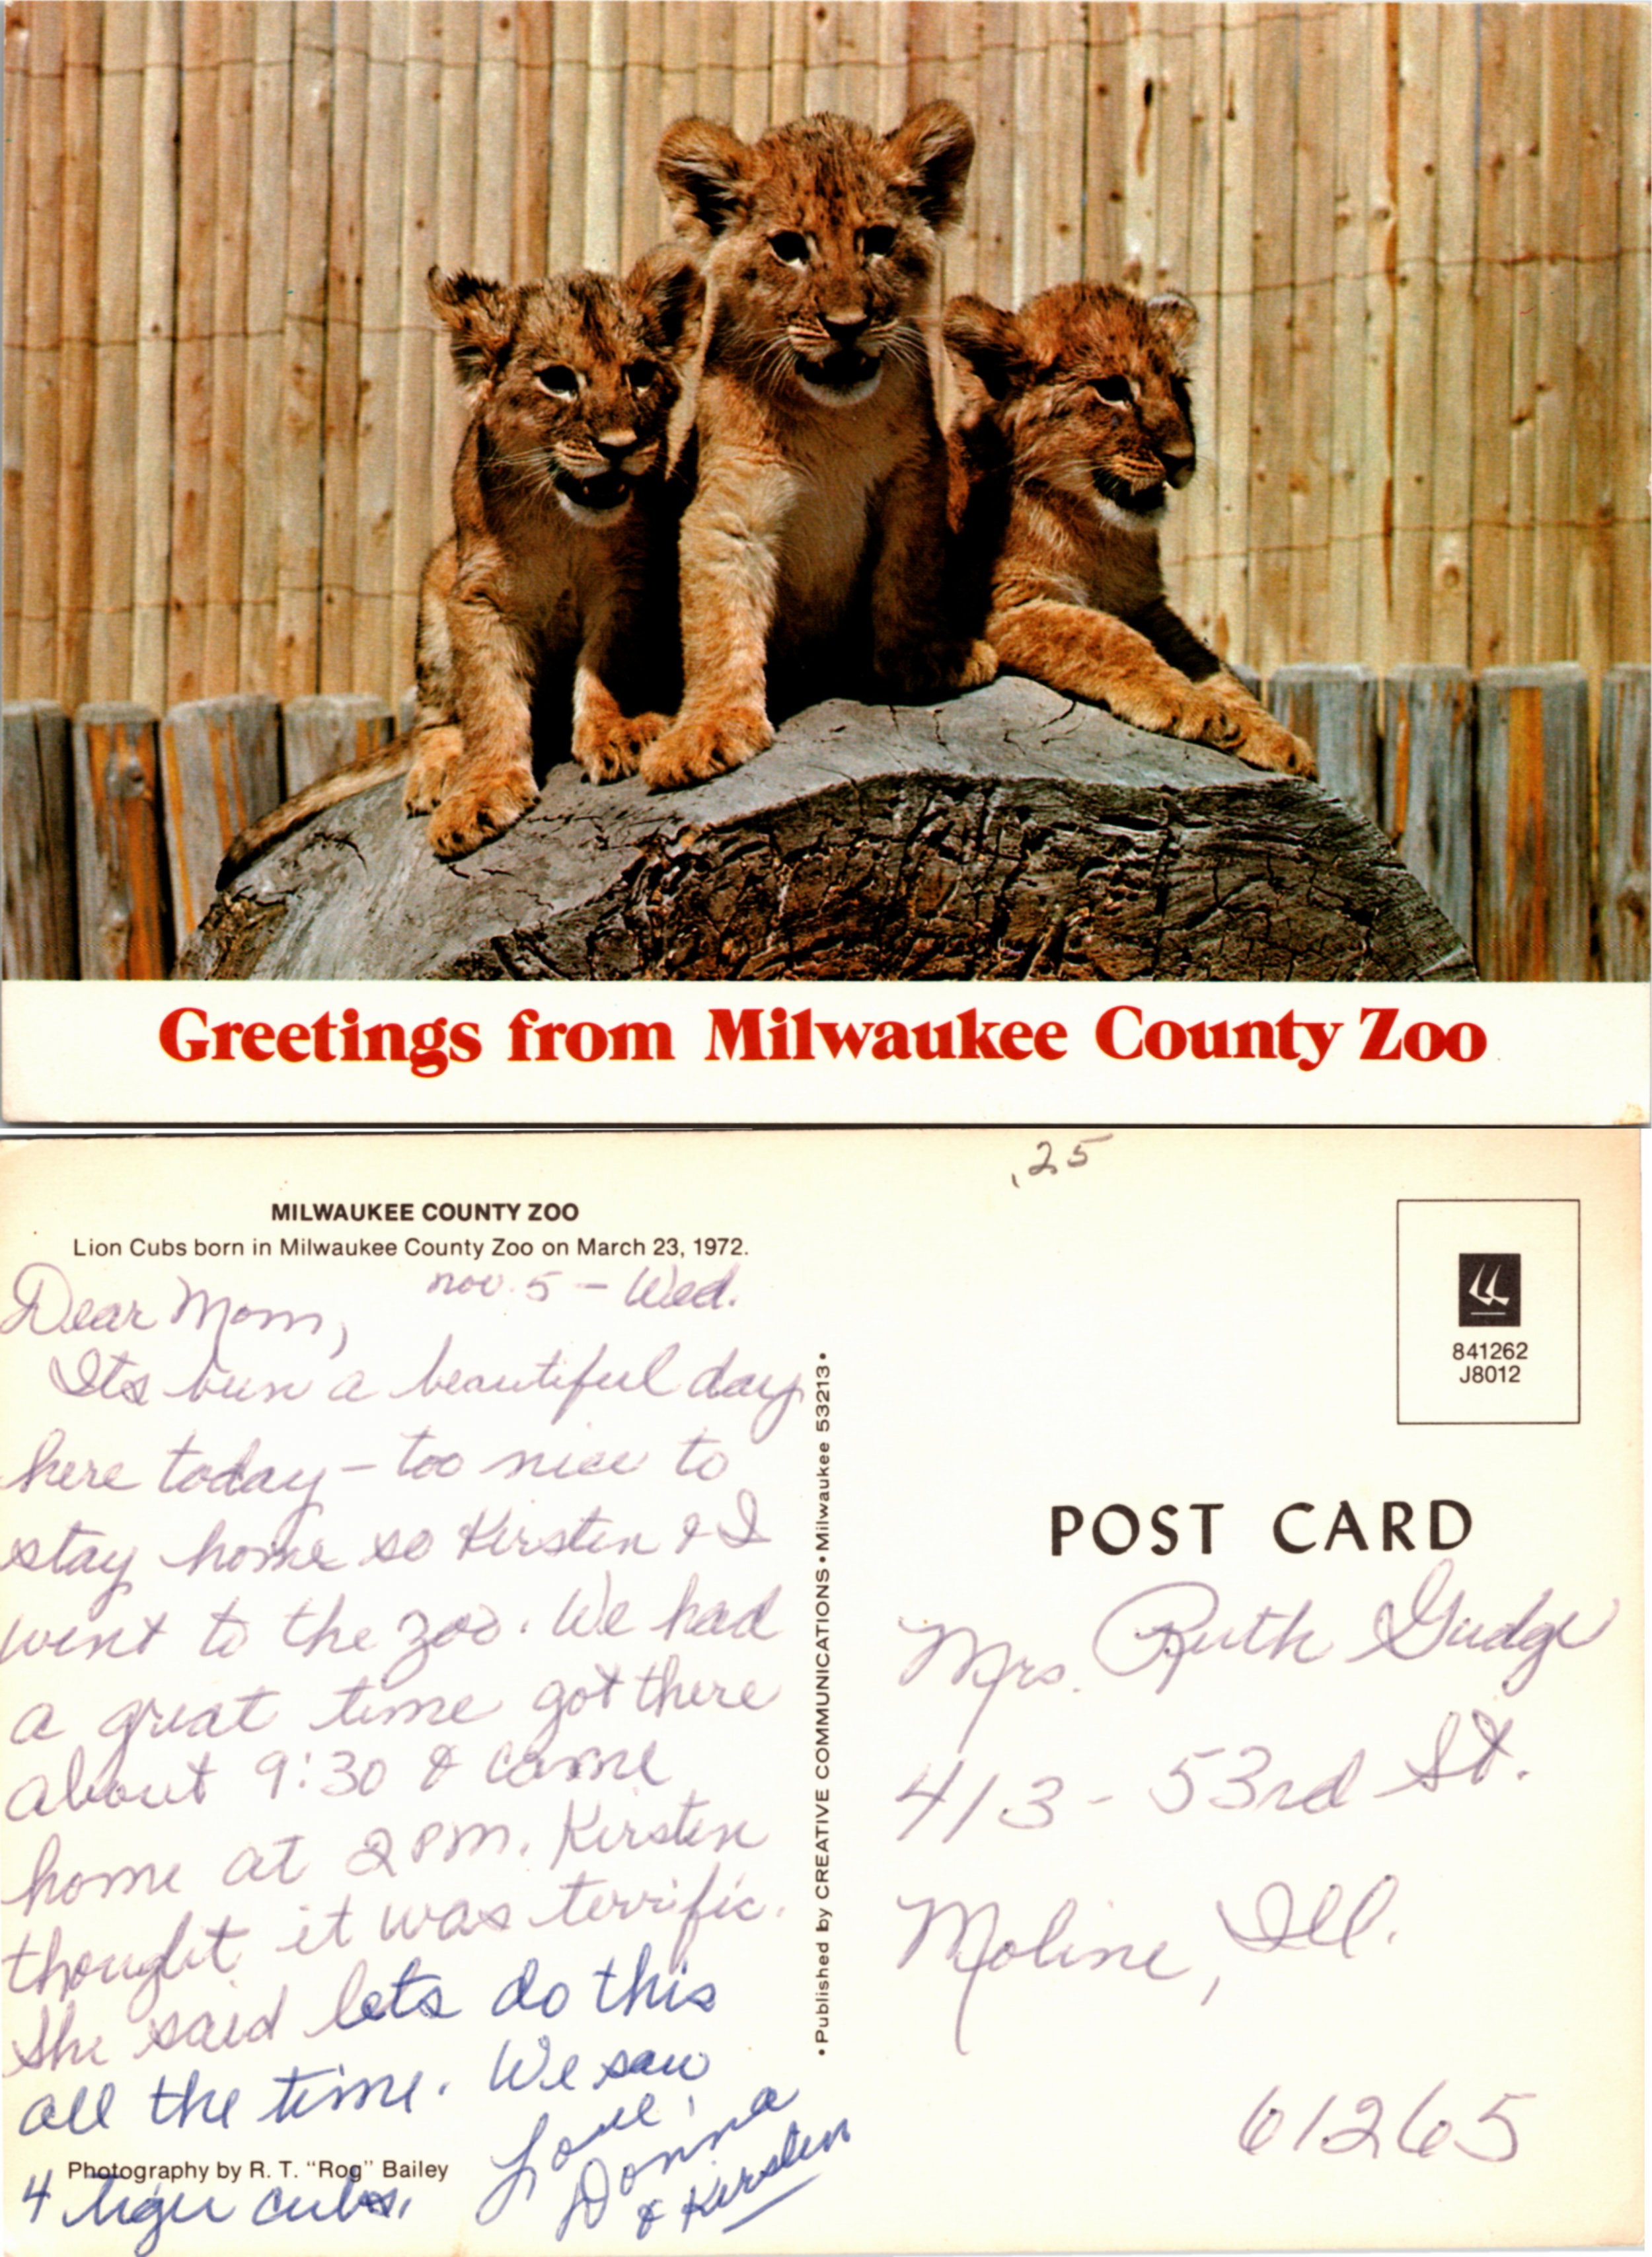 Greetings from Milwaukee County Zoo
.25
MILWAUKEE COUNTY ZOO
Lion Cubs born in Milwaukee County Zoo on March 23, 1972.
nov. 5 - Wed.
Dear Mom,
Its been a beautiful day
here today - too nice to
stay home so Kirsten & I
went to the zoo. We had
a great time got there
about 9:30 & came
home at 2 PM. Kirsten
thought it was terrific.
She said lets do this
all the time. We saw
4 tiger cubs.
Love,
Donna
& Kirsten
Photography by R. T. "Rog" Bailey
• Published by CREATIVE COMMUNICATIONS • Milwaukee 53213 •
841262
J8012
POST CARD
Mrs. Ruth Gudge
413 - 53rd St.
Moline, Ill.
61265